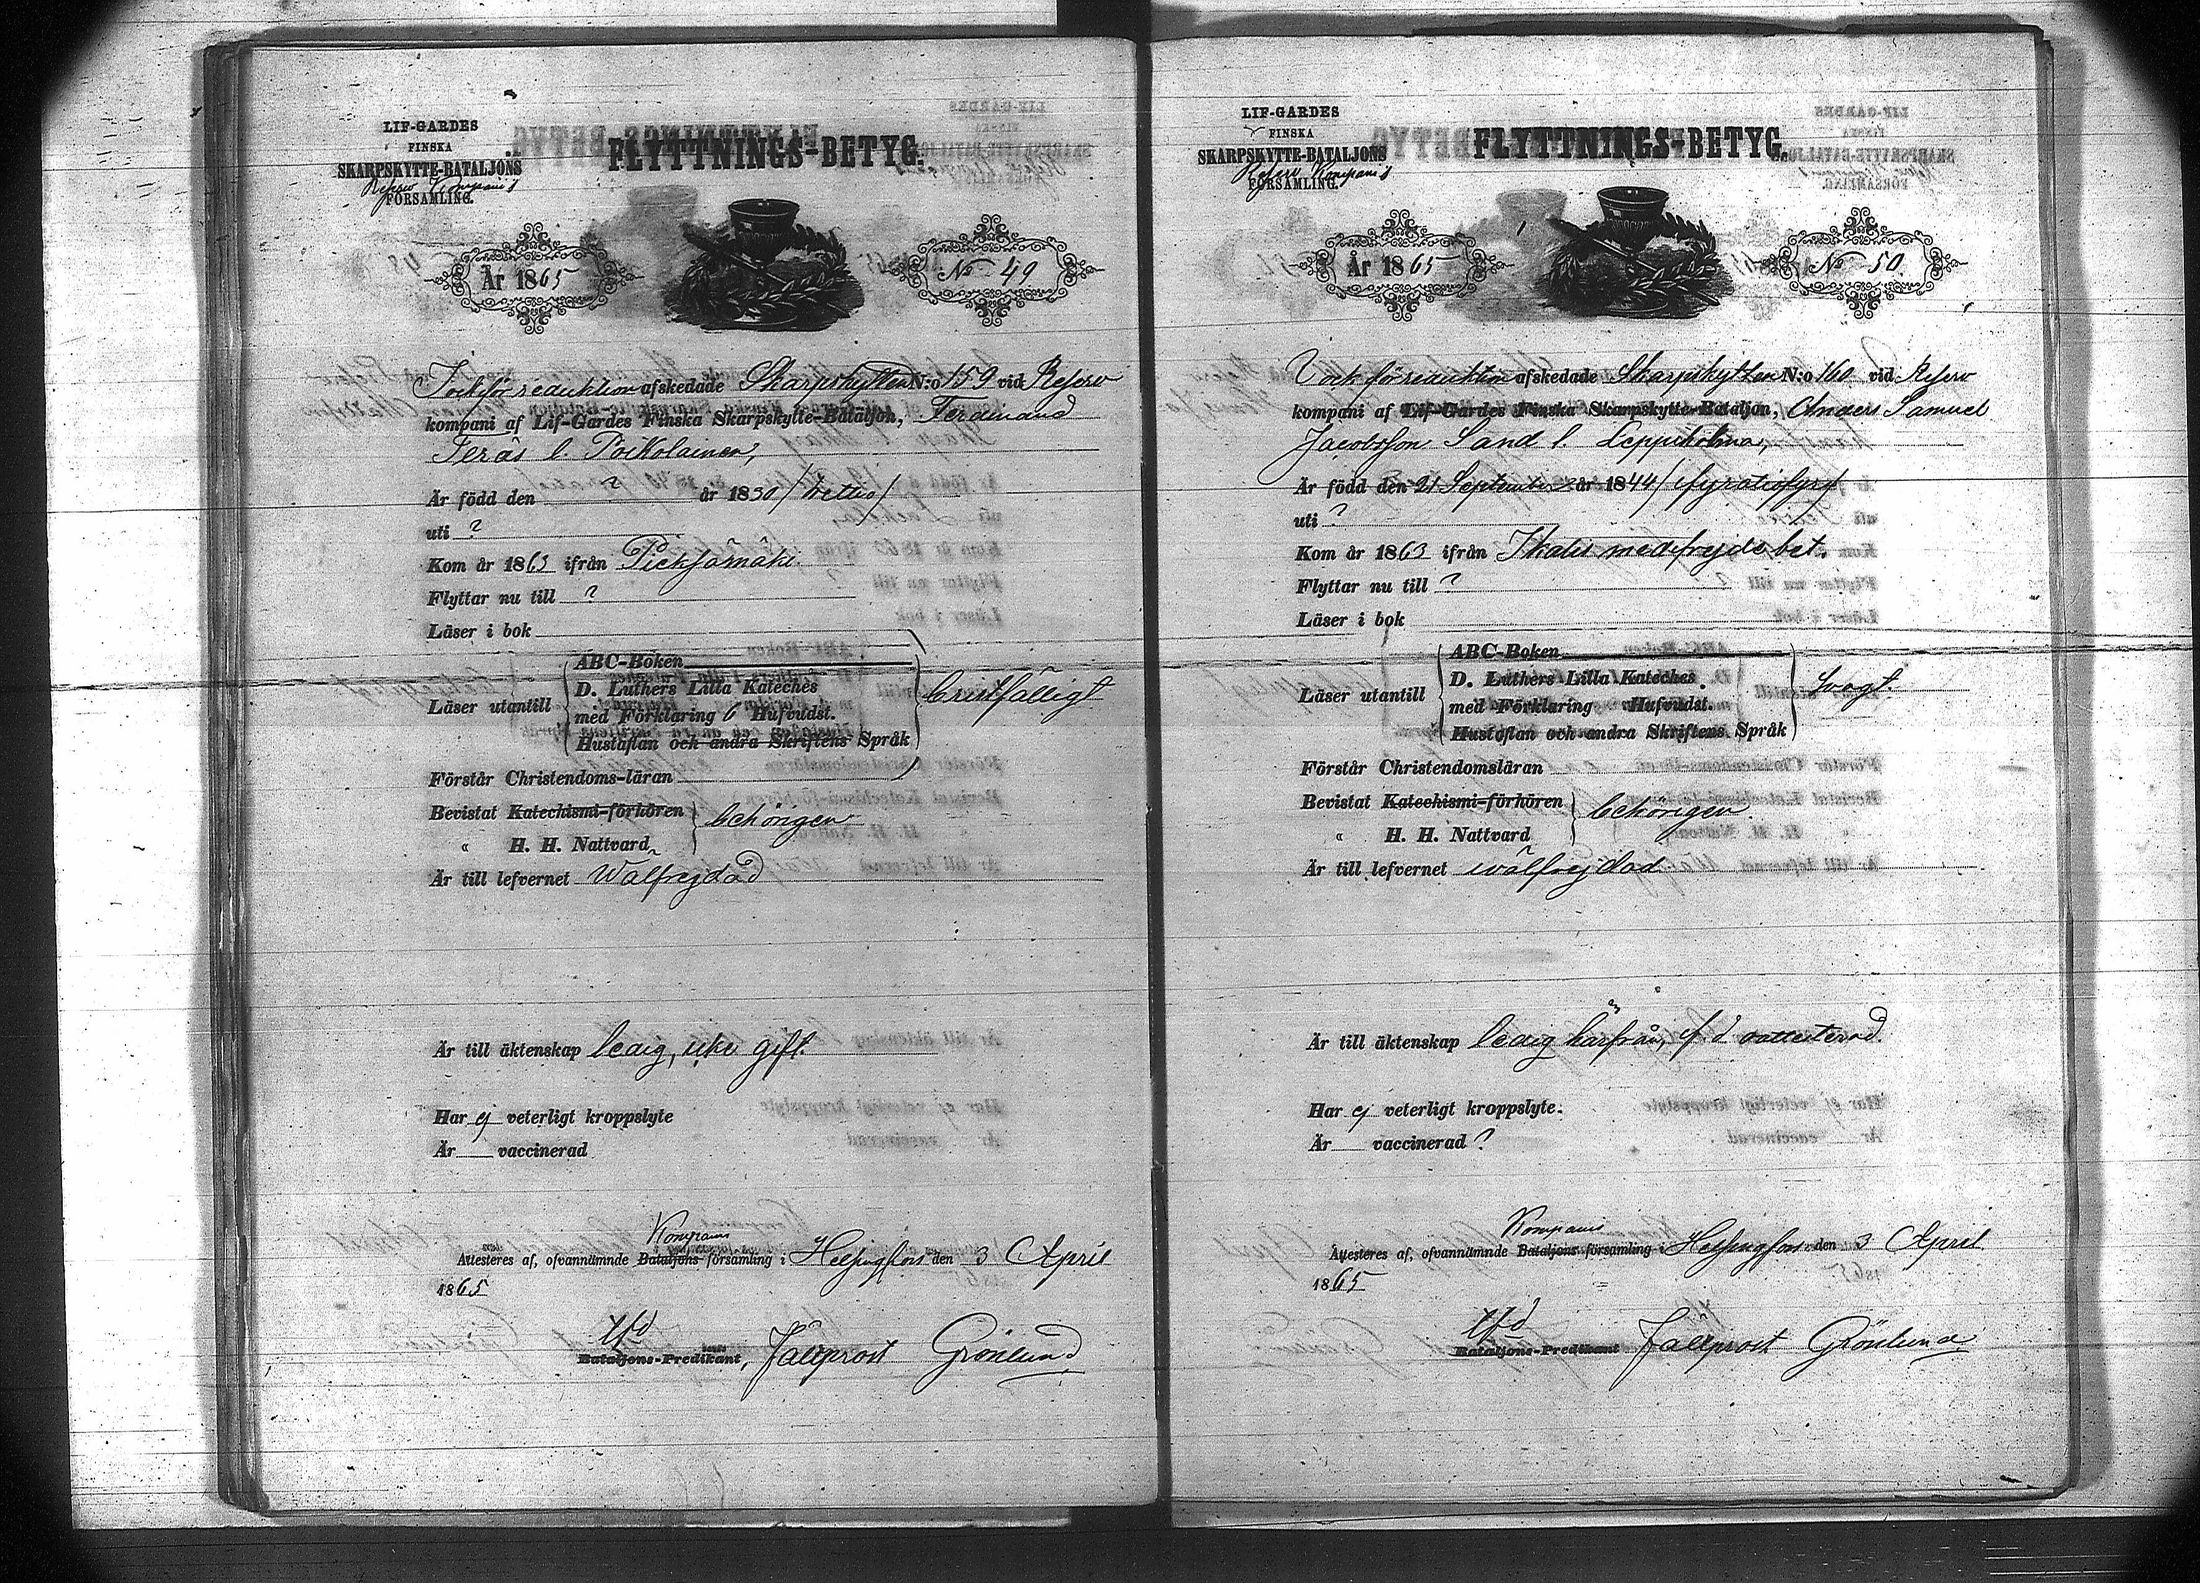 LIF-GARDES
FINSKA
SKARPSKYTTE-BATALJONS
Reserv Kompanis
FÖRSAMLING.
FLYTTNINGS-BETYG.
År 1865
No 49
afskedade Skarpskytten N:o 159 vid Reserv
kompani af Lif-Gardes Finska Skarpskytte-Bataljon, Ferdinand
Teräs l. Poikolainen,
Är född den ? år 1830/trettio/
uti ?
Kom år 1863 ifrån Pieksämäki.
Flyttar nu till ?
Läser i bok
ABC-Boken
D. Luthers Lilla Kateches
Läser utantill
bristfälligt
med Förklaring 6 Hufvudst.
Hustaflan och andra Skriftens Språk
Förstår Christendoms-läran
Bevistat Katechismi-förhören
behörigen
" H. H. Nattvard
Är till lefvernet Wälfrejdad
Är till äktenskap ledig, icke gift.
Har ej veterligt kroppslyte
Är vaccinerad
Kompanis
Attesteres af, ofvannämnde Bataljons församling i Helsingfors den 3 April
1865
tfd
Bataljons-Predikant, Fältprost Grönlund
LIF-GARDES
FINSKA
SKARPSKYTTE-BATALJONS
Reserv Kompanis
FÖRSAMLING.
FLYTTNINGS-BETYG.
År 1865
No 50.
afskedade Skarpskytten N:o 160 vid Reserv
kompani af Lif-Gardes Finska Skarpskytte-Bataljon, Anders Samuel
Jacobsson Sand l. Leppiholma,
Är född den 21 September år 1844/fyratiofyra/
uti ?
Kom år 1863 ifrån Ikalis med frejdebet.
Flyttar nu till ?
Läser i bok
ABC-Boken
D. Luthers Lilla Kateches
Läser utantill
svagt.
med Förklaring Hufvudst.
Hustaflan och andra Skriftens Språk
Förstår Christendomsläran
Bevistat Katechismi-förhören
behörigen.
" H. H. Nattvard
Är till lefvernet wälfrejdad.
Är till äktenskap ledig härifrån,
Har ej veterligt kroppslyte.
Är vaccinerad ?
Kompanis
Attesteres af, ofvannämnde Bataljons församling i Helsingfors den 3 April
1865
tfd
Bataljons-Predikant Fältprost Grönlund